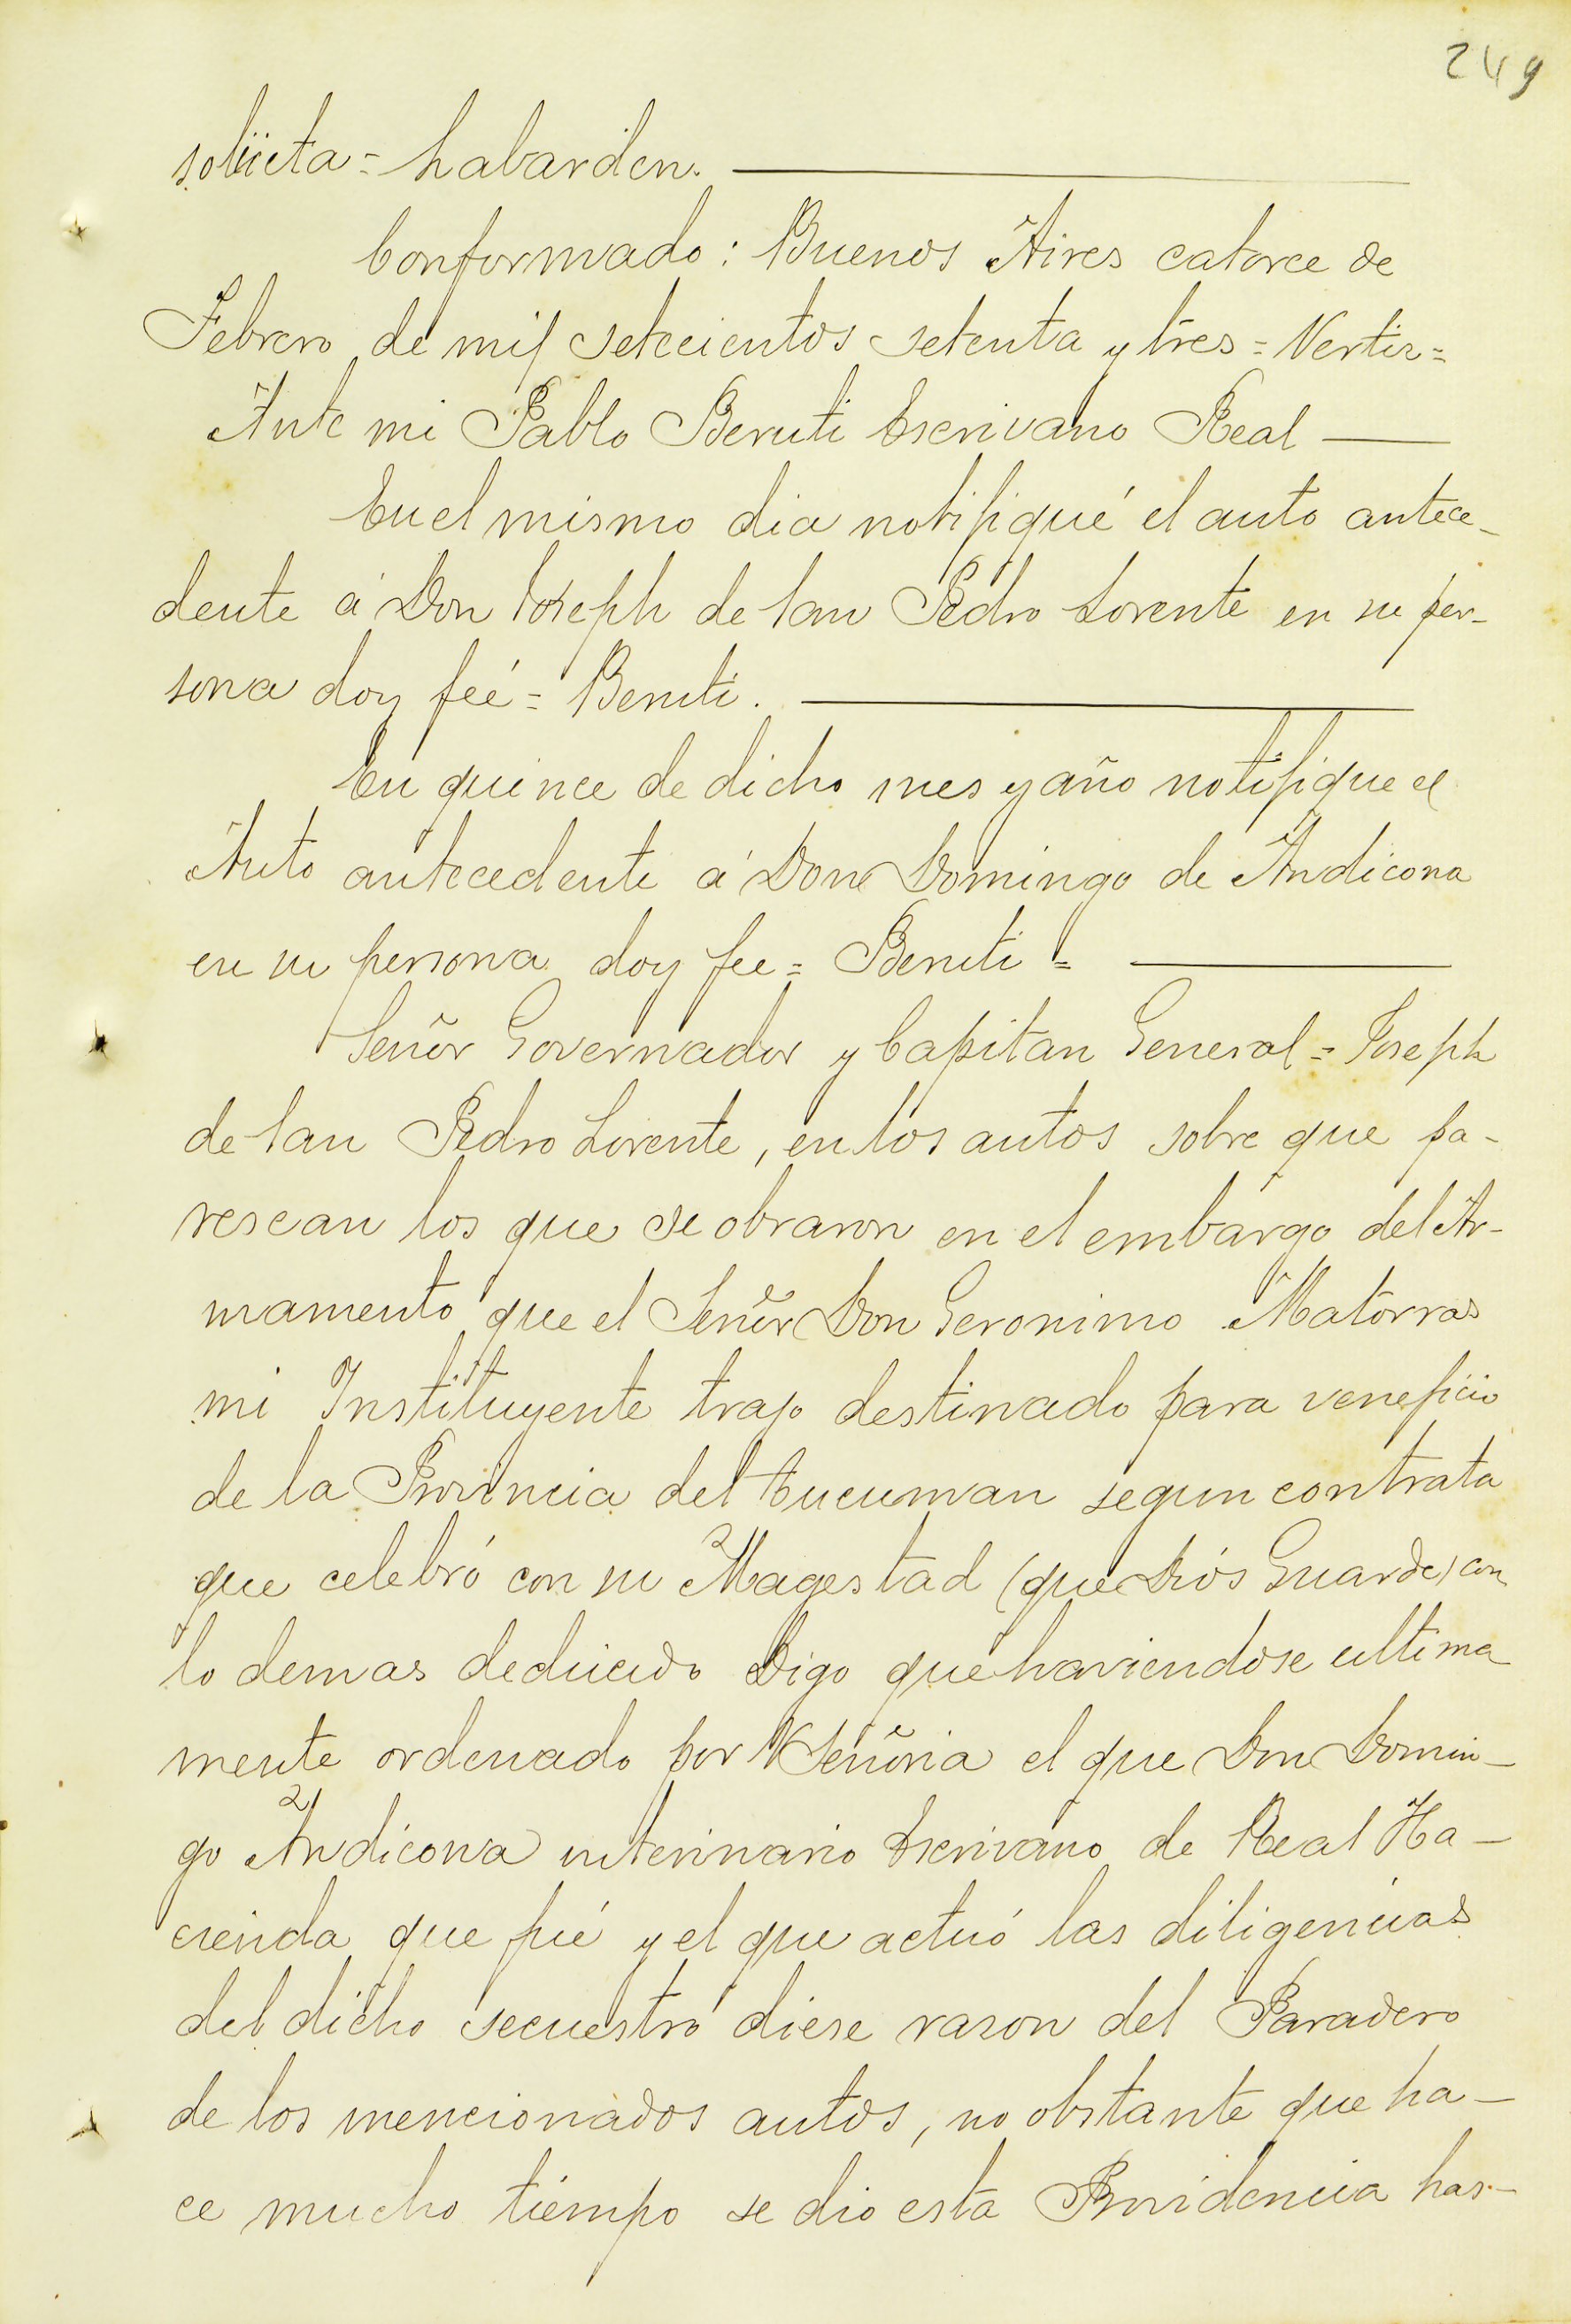 249
solicita = Labarden.
Conformado: Buenos Aires catorce de
Febrero de mil setecientos setenta y tres = Vertiz =
Ante mi Pablo Beruti Escrivano Real
En el mismo dia notifiqué el auto antece-
dente á Don Joseph de San Pedro Lorente en su per-
sona doy feé = Beruti.
En quince de dicho mes y año notifique el
Auto antecedente á Don Domingo de Andicona
en su persona doy fee = Beruti =
Señor Governador y Capitan General = Joseph
de San Pedro Lorente, en los autos sobre que pa-
rescan los que se obraron en el embargo del Ar-
mamento que el Señor Don Geronimo Matorras
mi Instituyente trajo destinado para veneficio
de la Provincia del Tucuman segun contrata
que celebró con su Magestad (que Diós Guarde) con
lo demas deducido Digo que haviendose ultima
mente ordenado por V Señoria el que Don Domin-
go Andicona interinario Escrivano de Real Ha-
cienda que fué y el que actuó las diligencias
del dicho secuestro diese rason del Paradero
de los mencionados autos, no obstante que ha-
ce mucho tiempo se dio esta Providencia has-